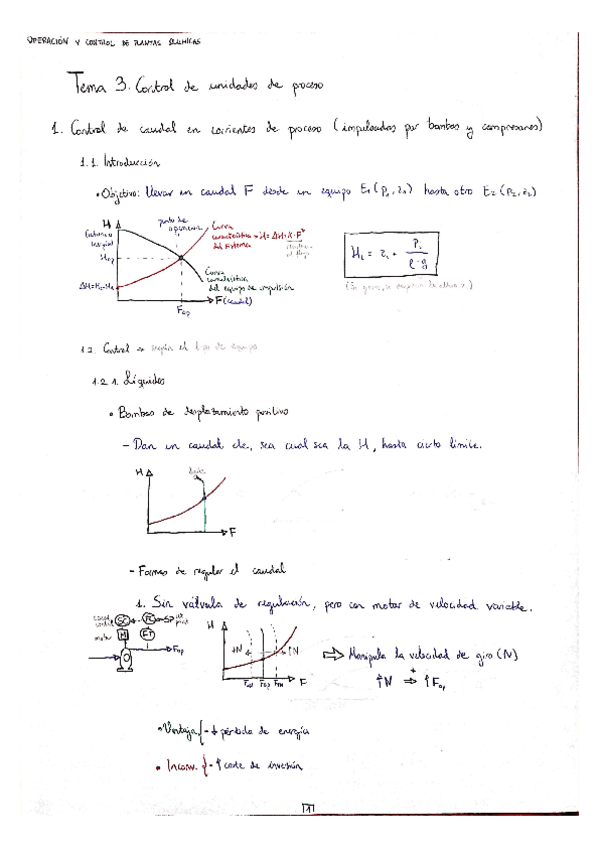 OPERACIÓN Y CONTROL DE PLANTAS QUÍMICAS
Tema 3. Control de unidades de proceso
1. Control de caudal en corrientes de proceso (impulsadas por bombas y compresores)
1.1. Introducción
• Objetivo: llevar un caudal F desde un equipo E1 (P1, z1) hasta otro E2 (P2, z2)
H
punto de operación
Curva característica del sistema
Hop
Curva característica del equipo de impulsión
Fop
F (caudal)
Hi = zi + Pi / ρ·g
1.2. Control → según el tipo de equipo
1.2.1. Líquidos
• Bombas de desplazamiento positivo
- Dan un caudal cte, sea cual sea la H, hasta cierto límite.
H
F
- Formas de regular el caudal
1. Sin válvula de regulación, pero con motor de velocidad variable.
SC FC SP
motor M FT
Fop
H
↓N ↑N
Fop
F
⇒ Manipula la velocidad de giro (N)
↑N → + ↑Fop
• Ventaja { - ↓ pérdida de energía
• Inconv. { - ↑ coste de inversión
1